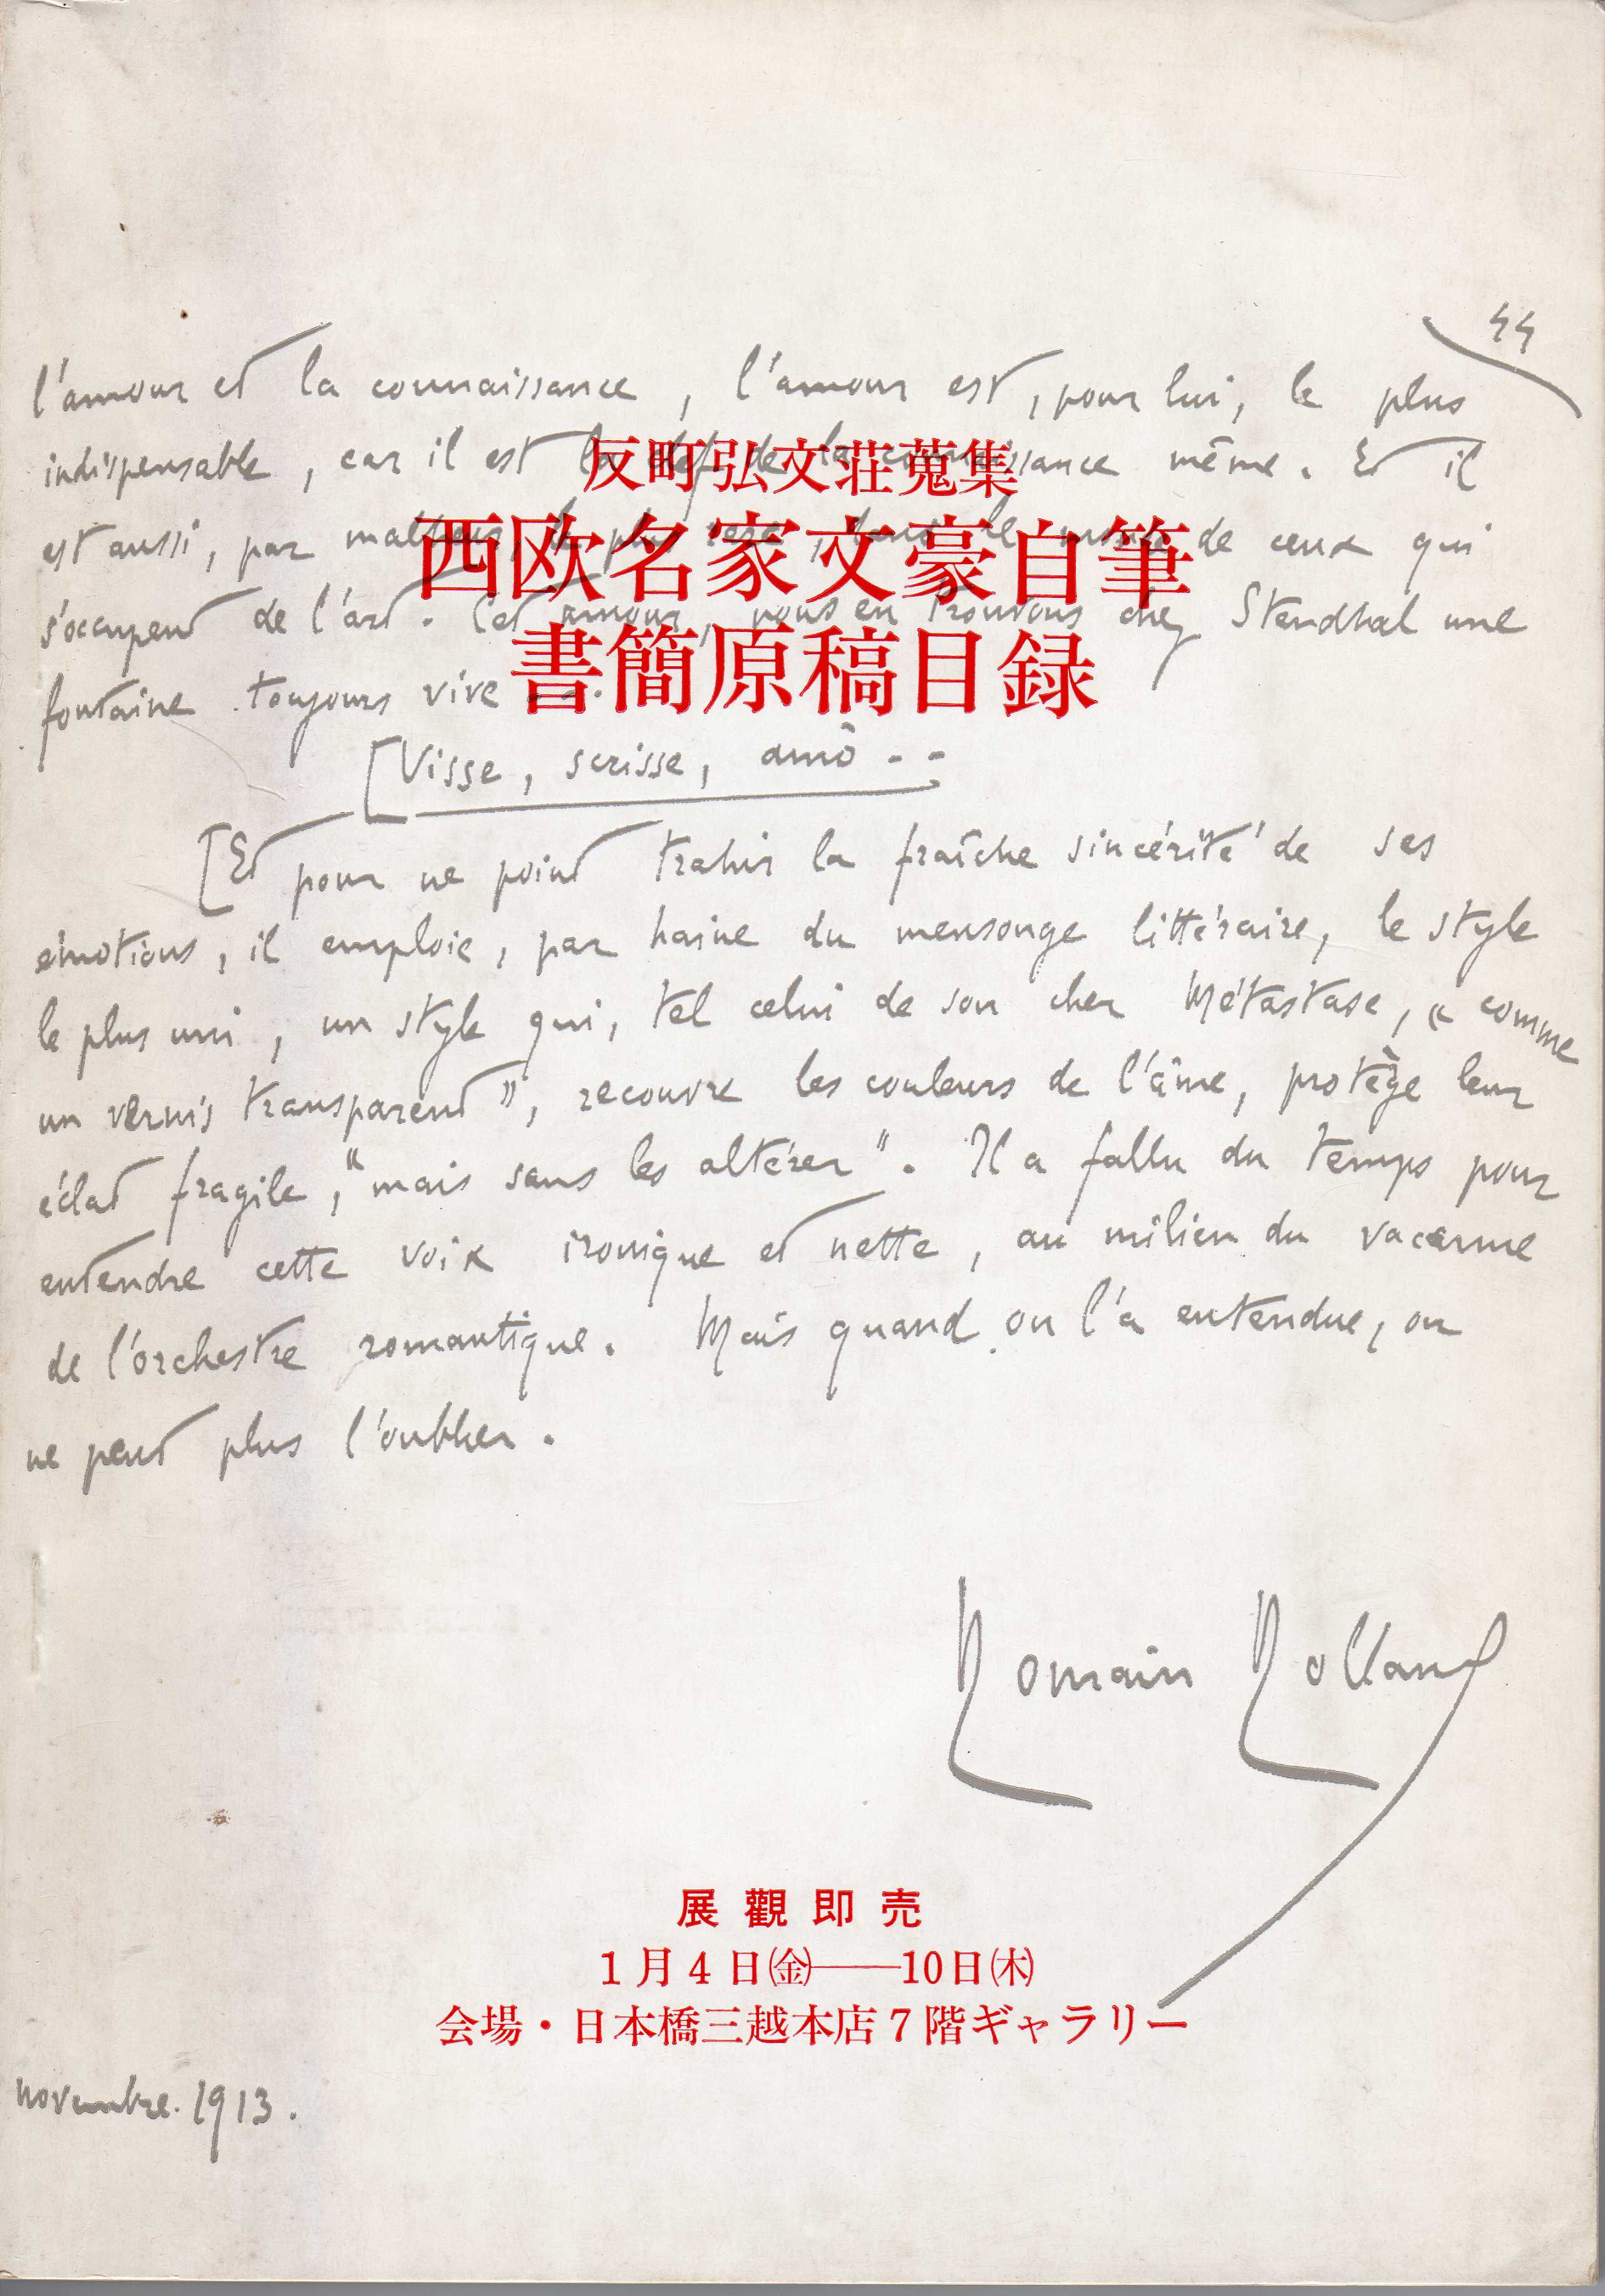 44
l'amour et la connaissance, l'amour est, pour lui, le plus
indispensable, car il est la clef de la connaissance même. Et il
est aussi, par malheur, le plus rare, dans le monde de ceux qui
s'occupent de l'art. Cet amour, nous en trouvons chez Stendhal une
fontaine toujours vive
反町弘文荘蒐集
西欧名家文豪自筆
書簡原稿目録
[Visse, scrisse, amò - -
[Et pour ne point trahir la fraîche sincérité de ses
émotions, il emploie, par haine du mensonge littéraire, le style
le plus uni, un style qui, tel celui de son cher Métastase, « comme
un vernis transparent », recouvre les couleurs de l'âme, protège leur
éclat fragile, "mais sans les altérer". Il a fallu du temps pour
entendre cette voix ironique et nette, au milieu du vacarme
de l'orchestre romantique. Mais quand on l'a entendue, on
ne peut plus l'oublier.
Romain Rolland
展觀即売
1月4日㈮――10日㈭
会場・日本橋三越本店7階ギャラリー
novembre. 1913.